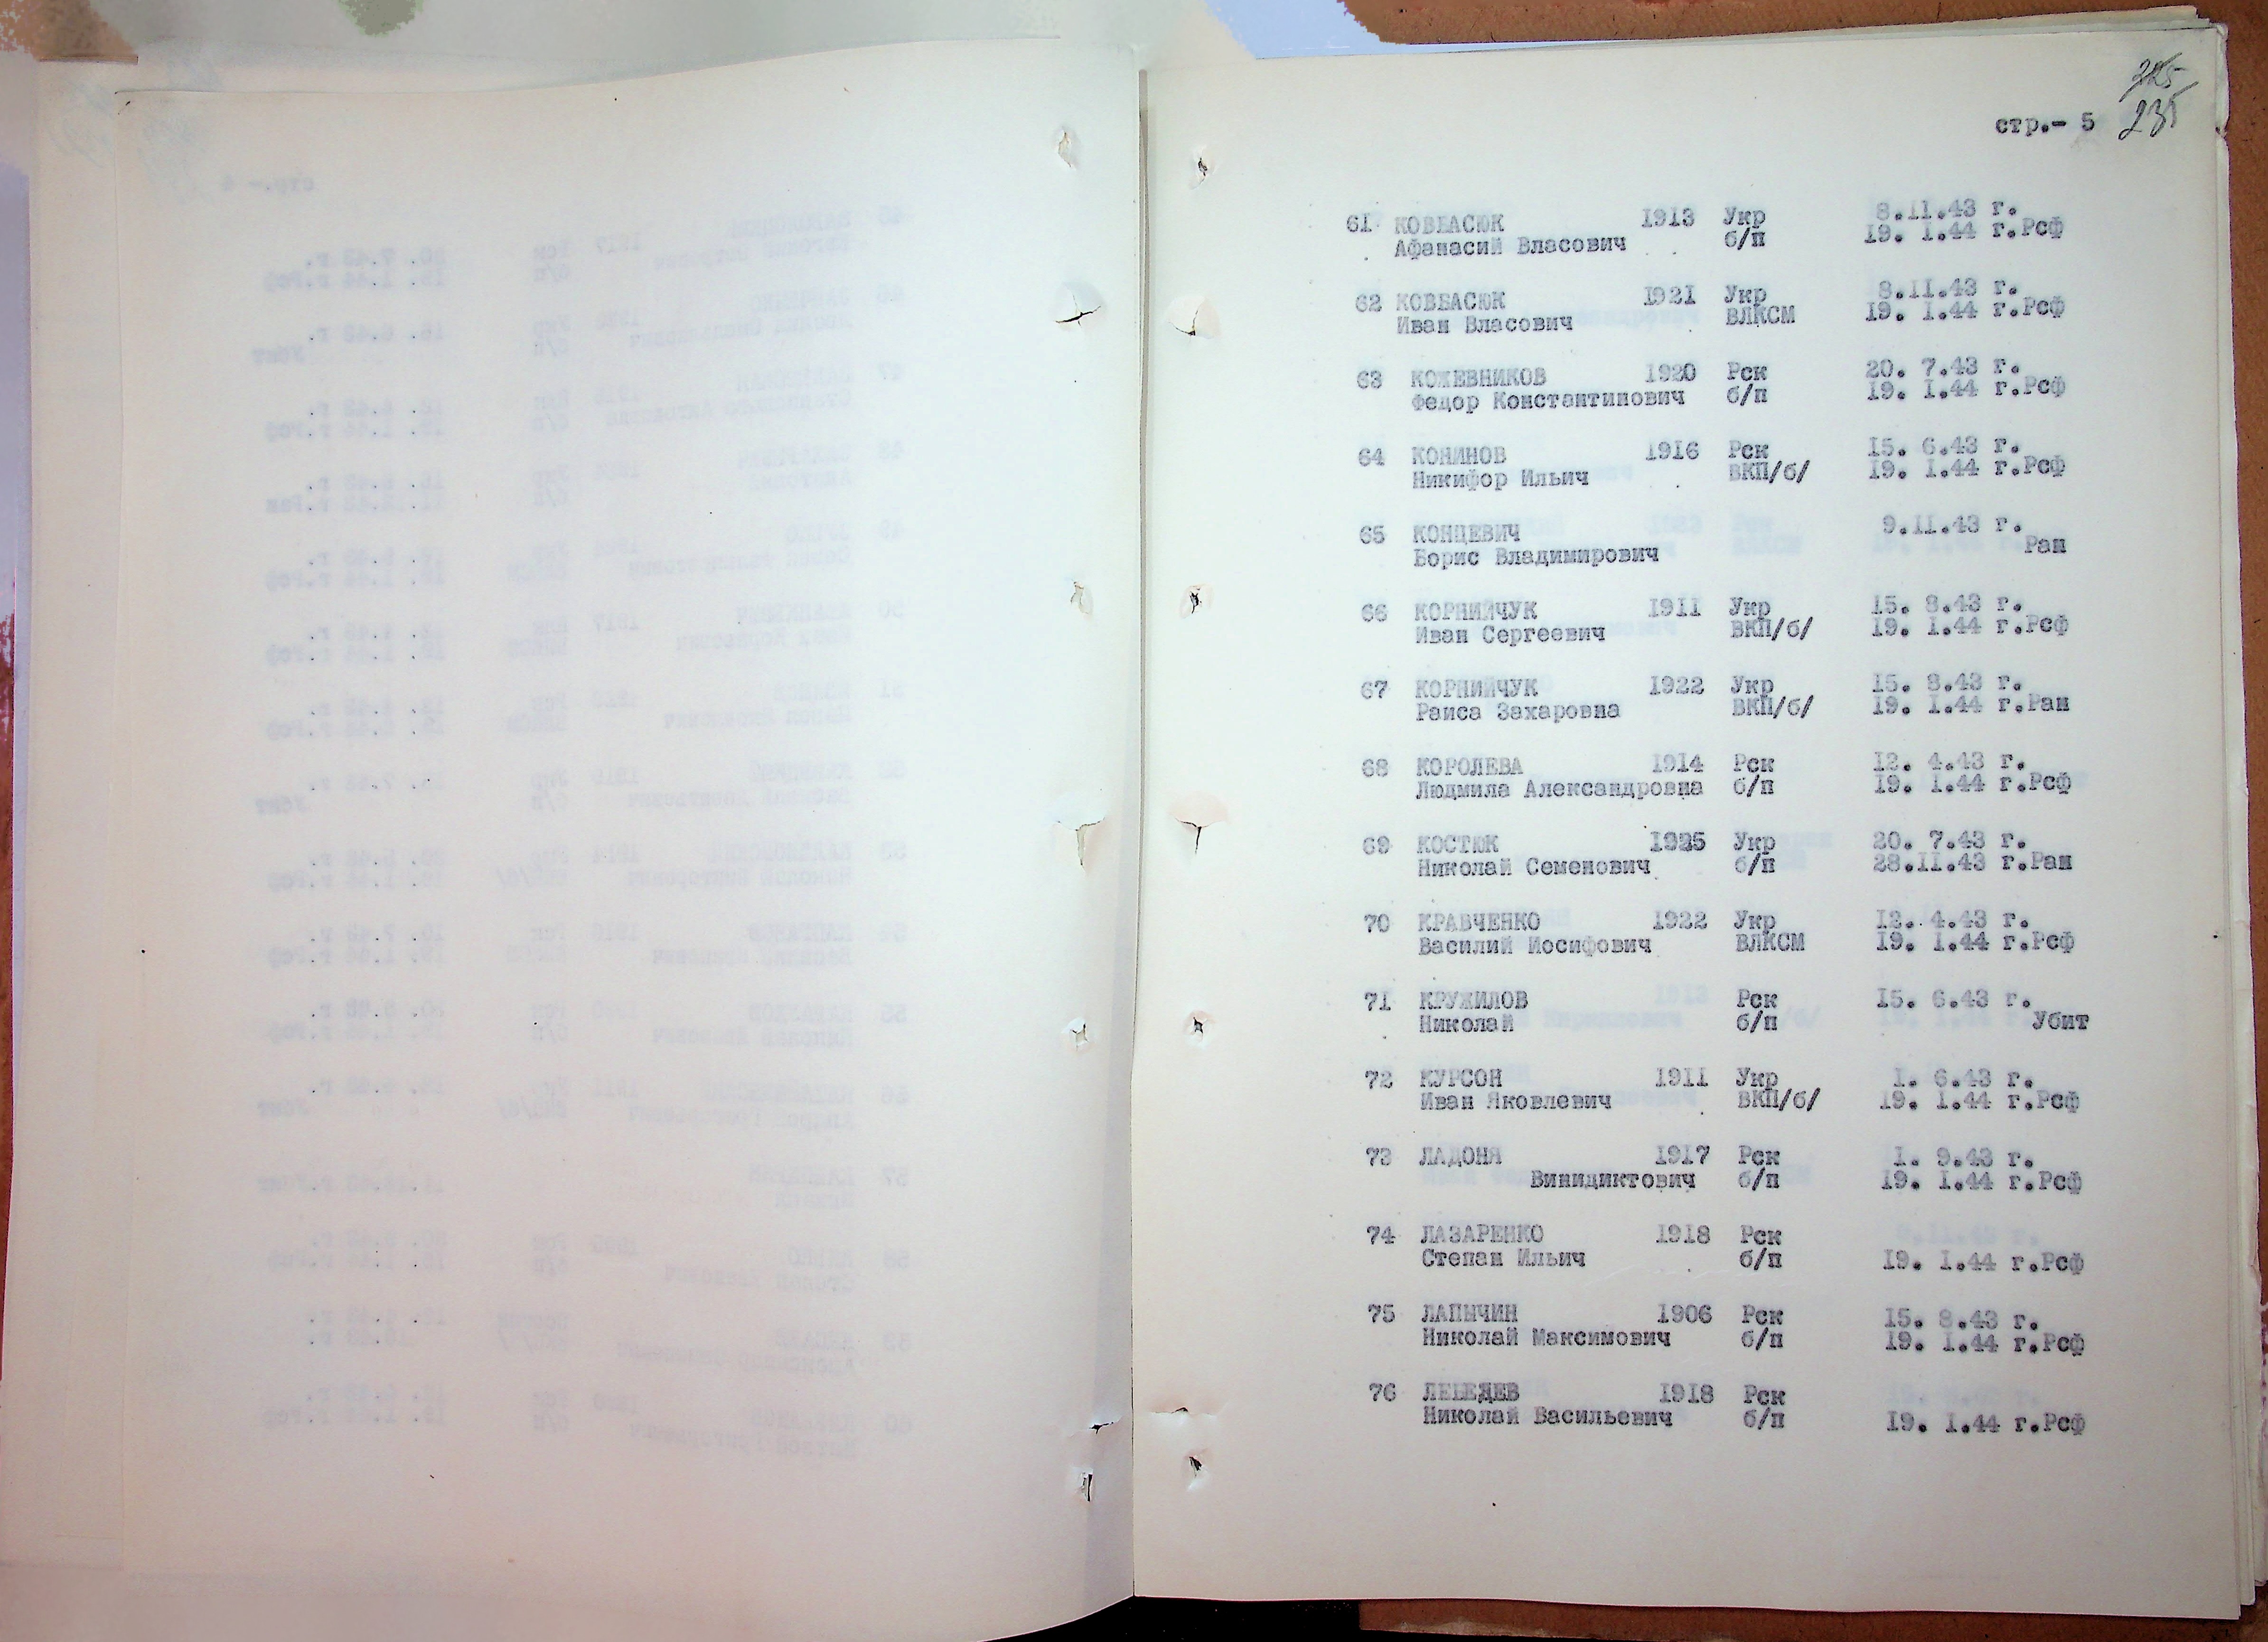 235
стр.- 5
61 КОВБАСЮК 1913 Укр 8.11.43 г.
Афанасий Власович б/п 19. 1.44 г.Рсф
62 КОВБАСЮК 1921 Укр 8.11.43 г.
Иван Власович ВЛКСМ 19. 1.44 г.Рсф
63 КОЖЕВНИКОВ 1920 Рск 20. 7.43 г.
Федор Константинович б/п 19. 1.44 г.Рсф
64 КОНИНОВ 1916 Рск 15. 6.43 г.
Никифор Ильич ВКП/б/ 19. 1.44 г.Рсф
65 КОНЦЕВИЧ 9.11.43 г.
Борис Владимирович Ран
66 КОРНИЙЧУК 1911 Укр 15. 8.43 г.
Иван Сергеевич ВКП/б/ 19. 1.44 г.Рсф
67 КОРНИЙЧУК 1922 Укр 15. 8.43 г.
Раиса Захаровна ВКП/б/ 19. 1.44 г.Ран
68 КОРОЛЕВА 1914 Рск 12. 4.43 г.
Людмила Александровна б/п 19. 1.44 г.Рсф
69 КОСТЮК 1925 Укр 20. 7.43 г.
Николай Семенович б/п 28.11.43 г.Ран
70 КРАВЧЕНКО 1922 Укр 12. 4.43 г.
Василий Иосифович ВЛКСМ 19. 1.44 г.Рсф
71 КРУЖИЛОВ Рск 15. 6.43 г.
Николай б/п Убит
72 КУРСОН 1911 Укр 1. 6.43 г.
Иван Яковлевич ВКП/б/ 19. 1.44 г.Рсф
73 ЛАДОНЯ 1917 Рск 1. 9.43 г.
Винидиктович б/п 19. 1.44 г.Рсф
74 ЛАЗАРЕНКО 1918 Рск
Степан Ильич б/п 19. 1.44 г.Рсф
75 ЛАПЫЧИН 1906 Рск 15. 8.43 г.
Николай Максимович б/п 19. 1.44 г.Рсф
76 ЛЕБЕДЕВ 1918 Рск
Николай Васильевич б/п 19. 1.44 г.Рсф